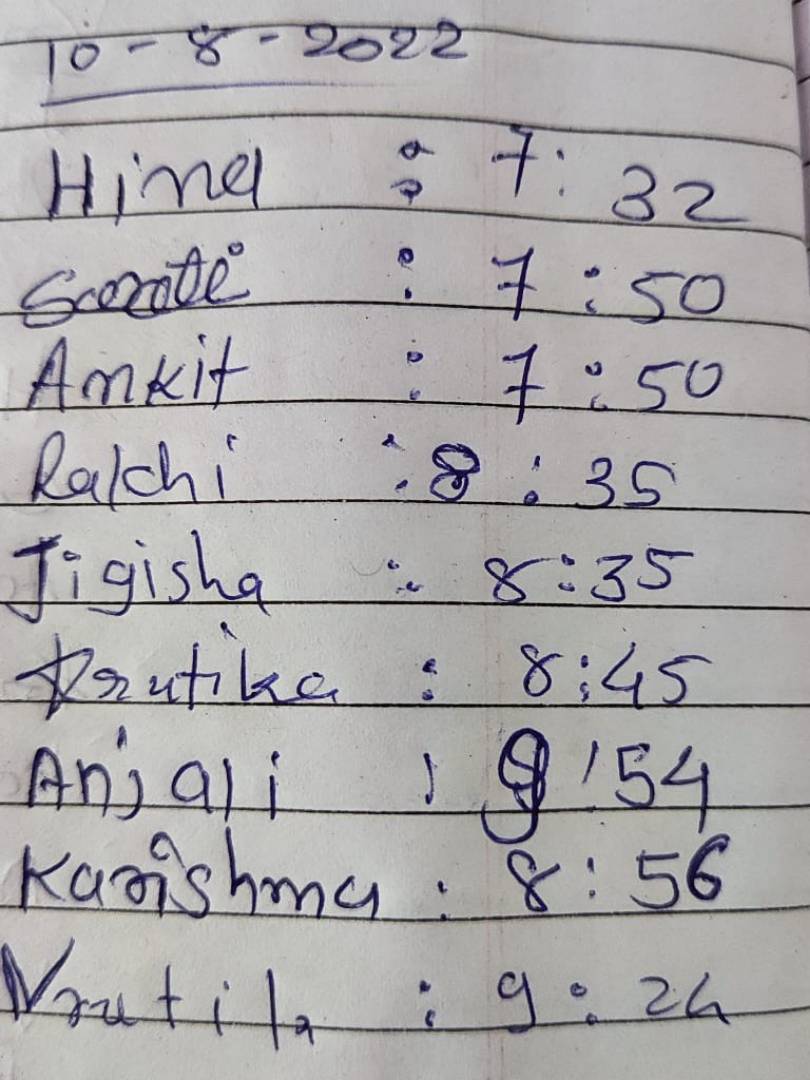 10 - 8 - 2022
Hina : 7 : 32
: 7 : 50
Ankit : 7 : 50
Rakhi : 8 : 35
Jigisha : 8:35
Krutika : 8:45
Anjali : :54
Karishma : 8 : 56
Vrutika : 9 : 24